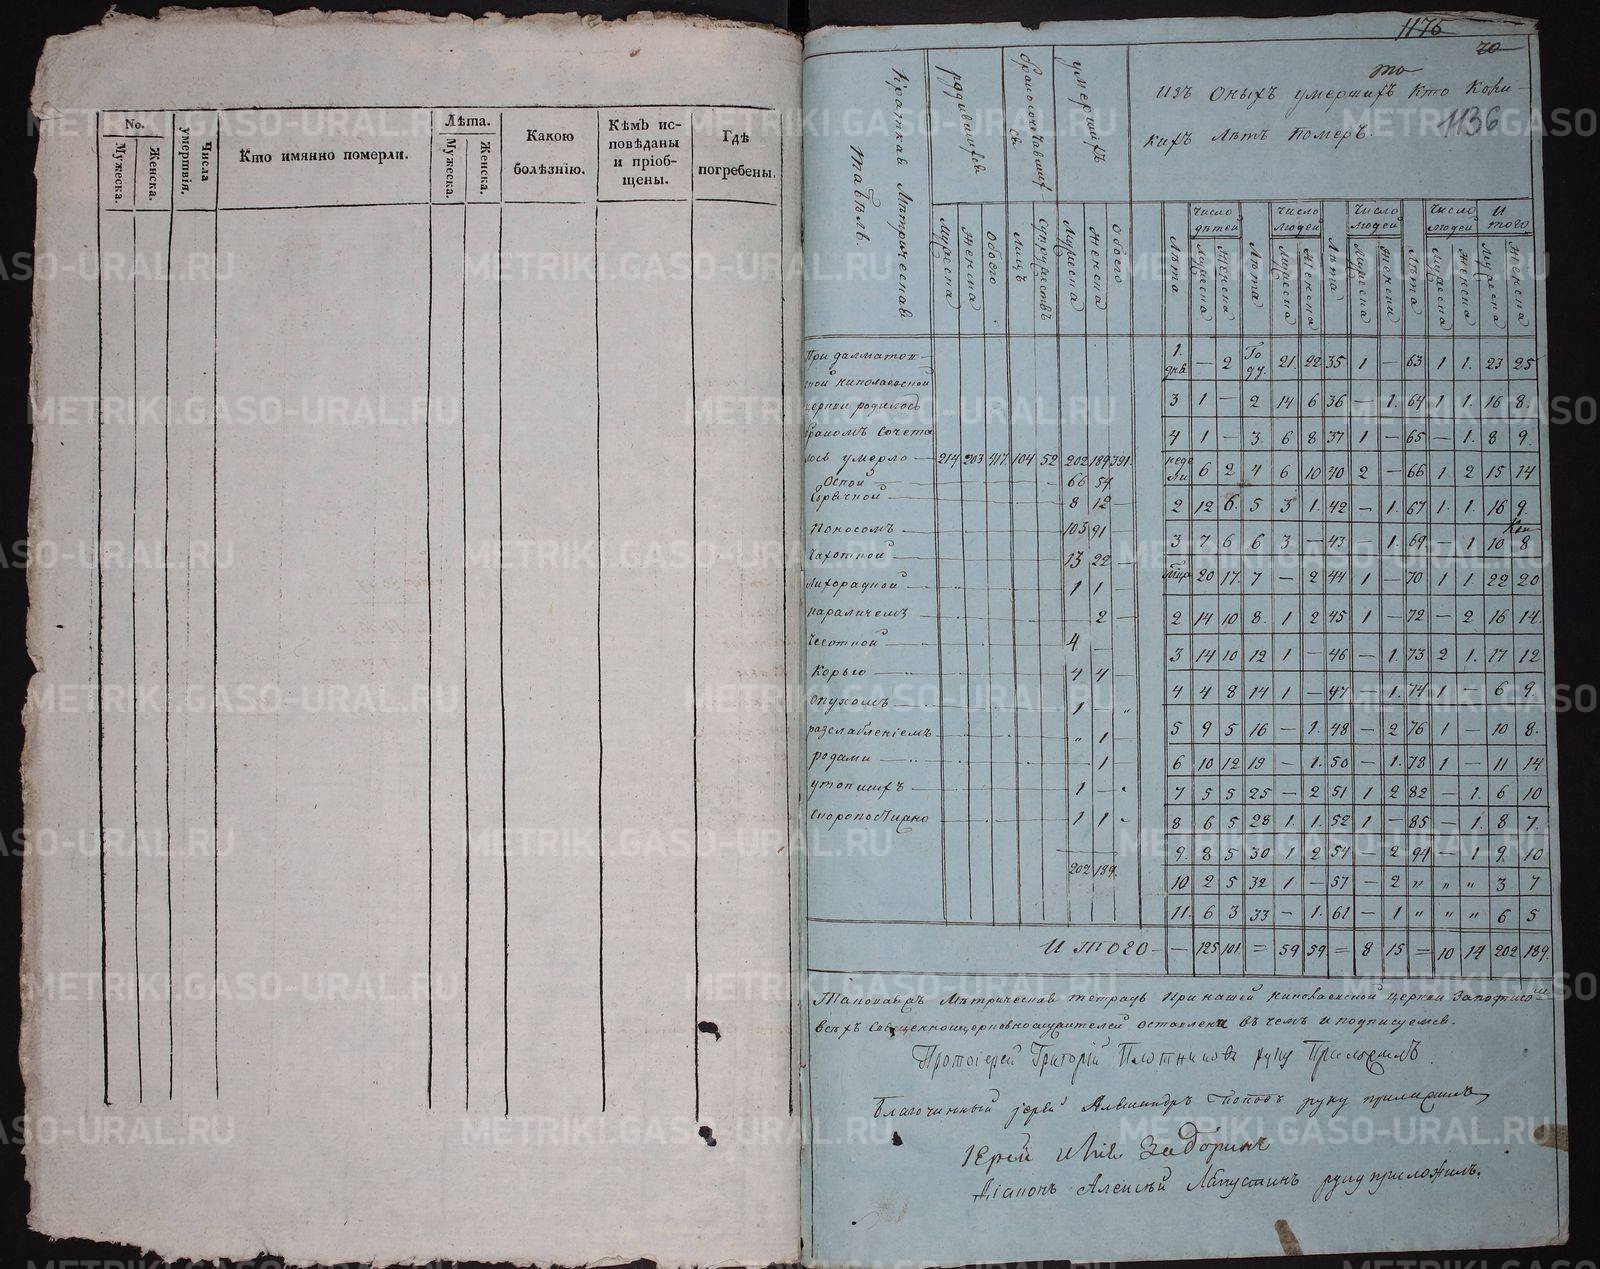 No.
Мужеска.
Женска.
Числа умертвія.
Кто имянно померли.
Лѣта.
Мужеска.
Женска.
Какою
болѣзнію.
Кѣмъ ис-
повѣданы
и пріоб-
щены.
Гдѣ
погребены.
1175
20
1136
Краткая Метрическая табель.
родившихся
бракосочетавшихся
умершихъ
Изъ оныхъ умершихъ кто
кихъ лѣтъ померъ.
Мужеска Женска обоего Лицъ супружествъ Мужеска Женска обоего
Лѣта Число дѣтей Мужеска Женска Лѣта Число людей Мужеска Женска Лѣта Число людей Мужеска Женска Лѣта Число людей Мужеска Женска Итого Мужеска Женска
При далматов-
ской николаевской
церкви родилось
бракомъ сочета
лось умерло — 214 203 417 104 52 202 189 391
Оспой 66 54
Горячкой 8 12
Поносомъ 103 91
Чахоткой 13 22
лихорадкой 1 1
параличемъ 2
Чесоткой 4 —
Корью 4 4
Опухомъ 1 —
разслабленіемъ " 1
родами — 1
утопшихъ 1 —
Скоропостижно 1 1
202 189
1. дня — 2 Году. 21 22 35 1 — 63 1 1. 23 25
3 1 — 2 14 6 36 — 1. 64 1 1. 16 8.
4 1 — 3. 6 8 37 1 — 65 — 1. 8 9.
недели 6 2 4 6 10 40 2 — 66 1 2 15 14
2 12 6. 5 3 1. 42 — 1. 67 1. 1. 16 9.
3 7 6 6 3 — 43 — 1. 69 — 1 10 8
20 17. 7 — 2 44 1 — 70 1 1. 22 20
2 14 10 8. 1 2 45 1 — 72 — 2 16 14.
3 14 10 12 1 — 46 — 1. 73 2 1. 17 12
4 4 8 14 1 — 47 — 1. 74 1 — 6 9.
5 9 5 16 — 1. 48 — 2 76 1 — 10 8.
6 10 12 19 — 1. 50 — 1. 78 1 — 11 14
7 5 5 25 — 2 51 1 2 82 — 1. 6 10
8 6 5 28 1. 1. 52 1 — 85 — 1. 8 7.
9. 8 5 30 1 2 54 — 2 94 — 1 9. 10
10 2 5 32 1 — 57 — 2 " " " 3 7
11. 6 3 33 — 1. 61 — 1 " " " 6 5
Итого — — 125 101. = 59 59. = 8 15 = 10 14 202 189.
Таковая Метрическая тетрадь при нашей николаевской церкви
всѣхъ священноцерковнослужителей оставлена въ чемъ и подписуемся.
Протоіерей Григорій Плотниковъ руку приложилъ.
Благочинный іерей Александръ Поповъ руку приложилъ
Іерей Задоринъ
Діаконъ Алексѣй Лапустинъ руку приложилъ.
METRIKI.GASO-URAL.RU